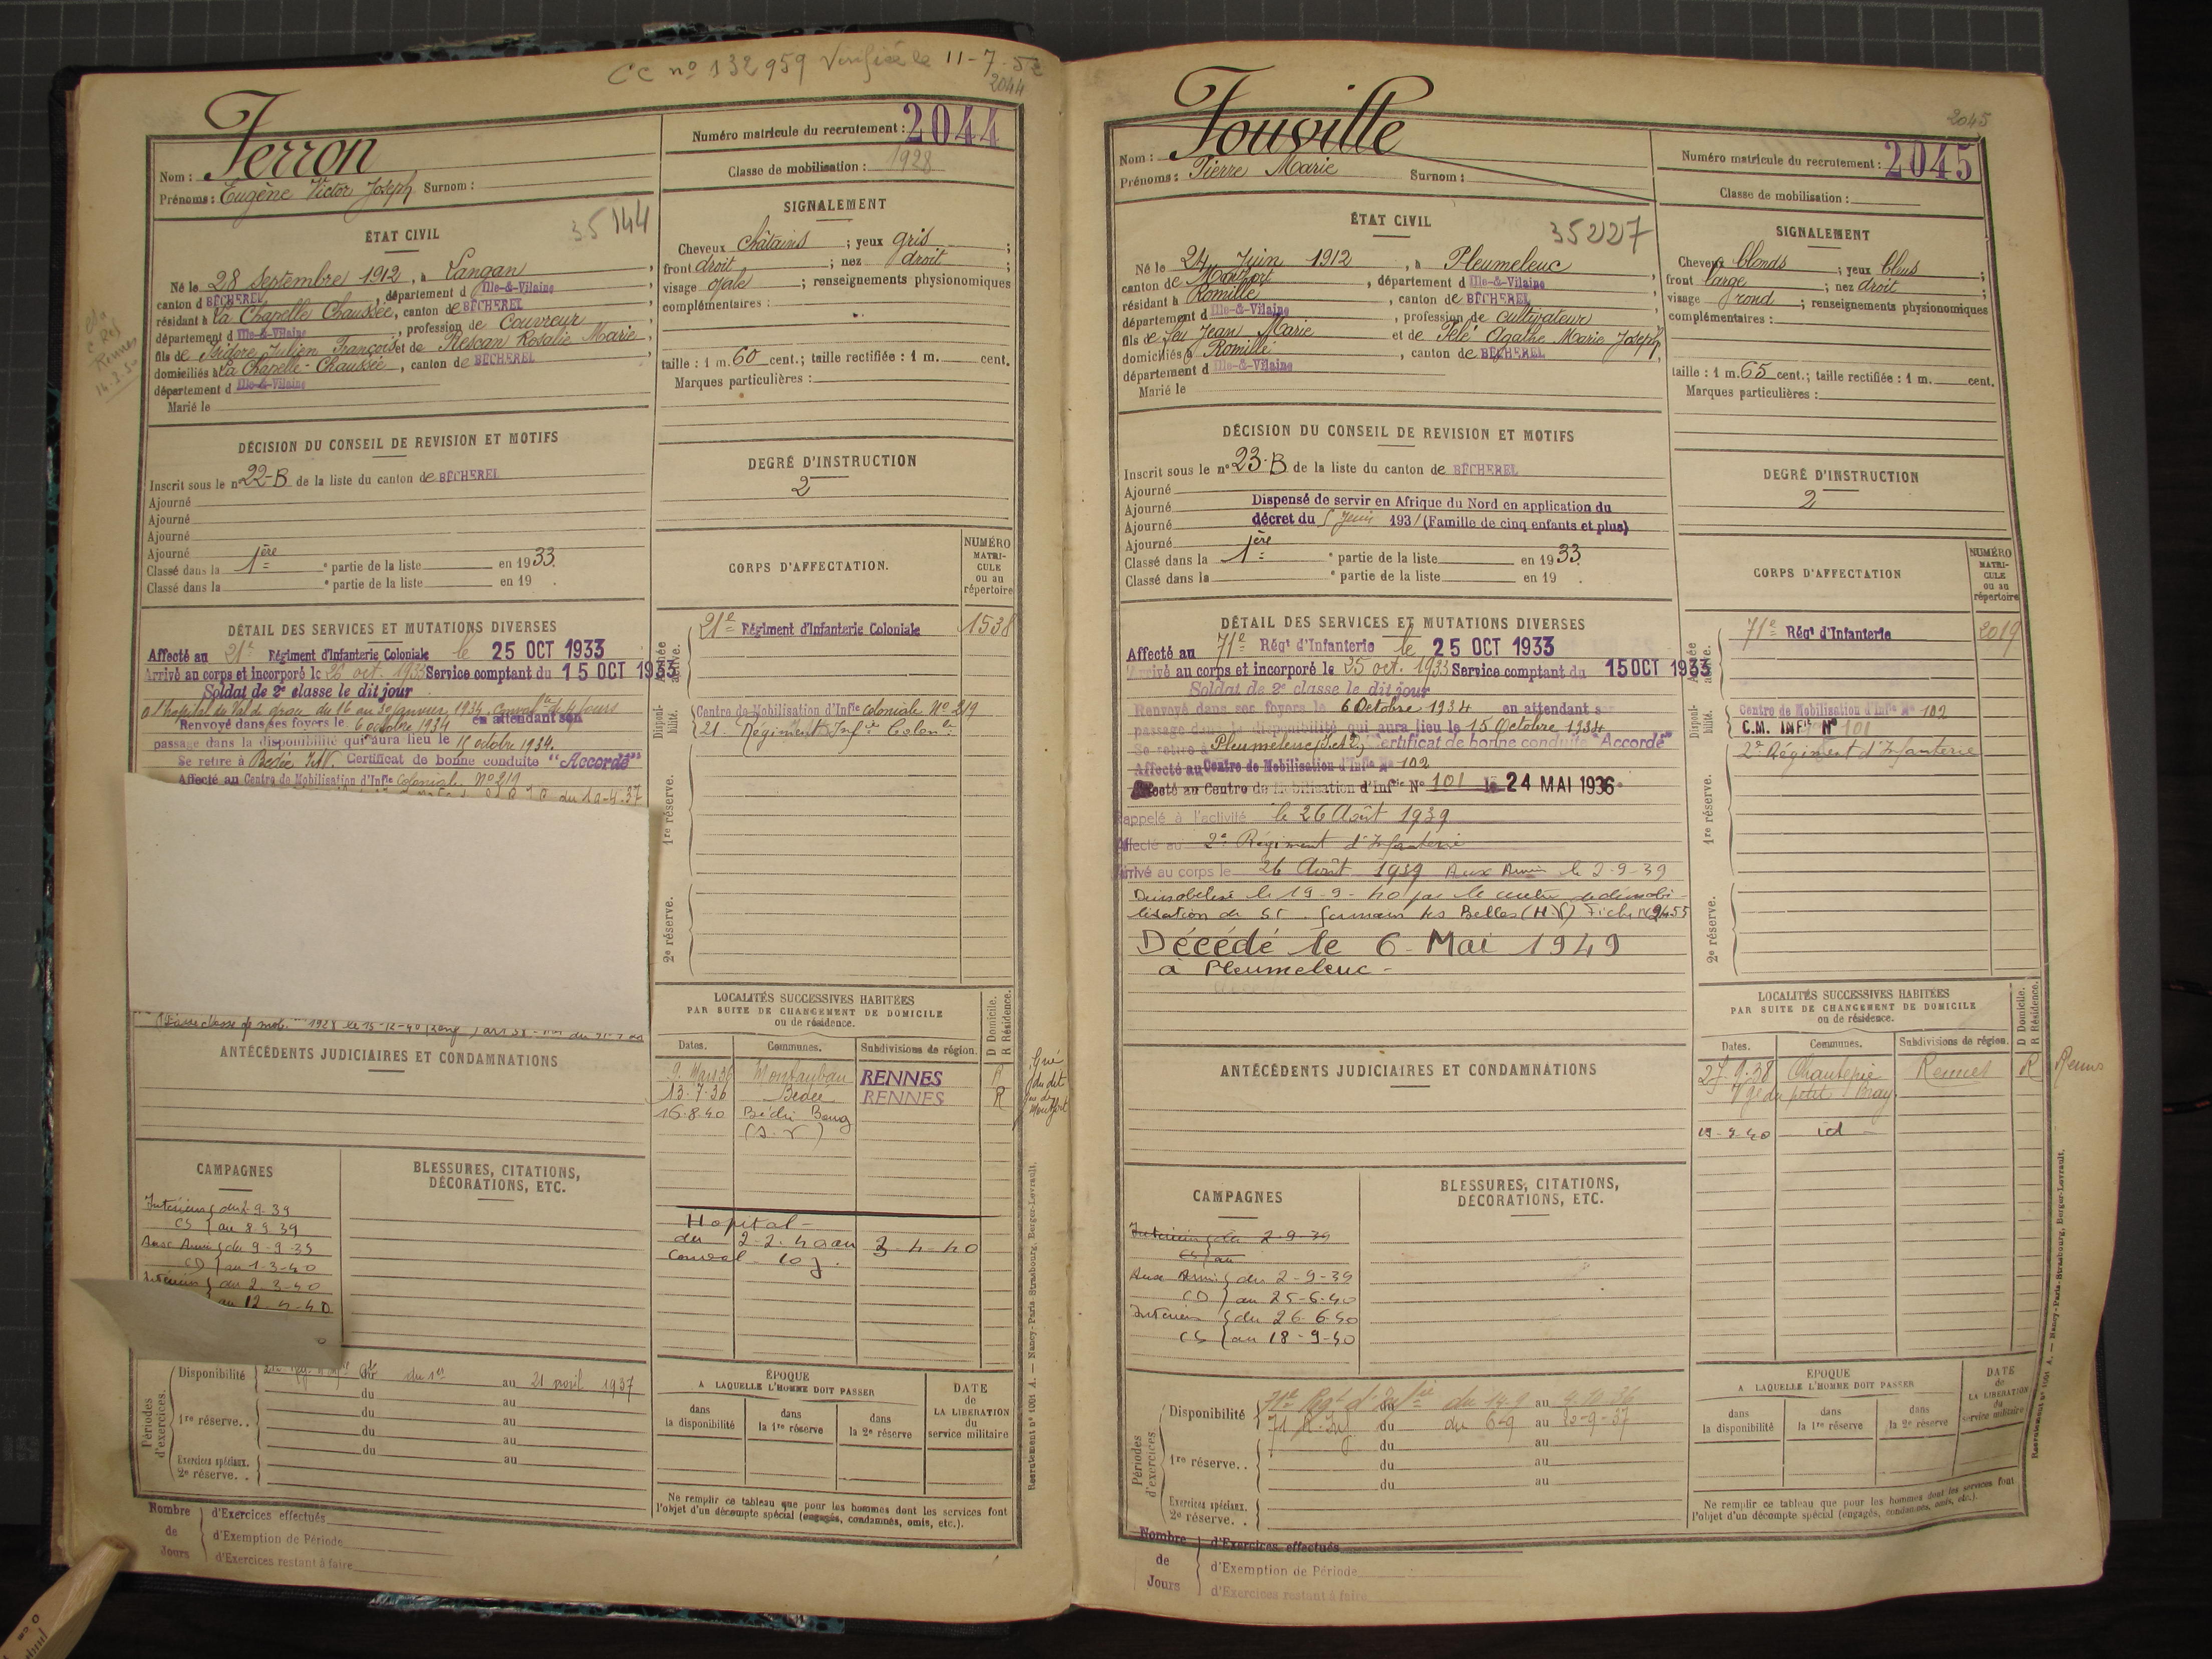 CC nº 132 959 Vérifiée le 11-7-52
2044
Ferron
Nom :
Prénoms : Eugène Victor Joseph Surnom :
Numéro matricule du recrutement : 2044
Classe de mobilisation : 1928
ÉTAT CIVIL
35144
Né le 28 Septembre 1912, à Langan,
canton d BÉCHEREL, département d Ille-&-Vilaine
résidant à La Chapelle Chaussée, canton de BÉCHEREL
département d Ille-&-Vilaine, profession de Couvreur
fils de Isidore Julien François et de Rescan Rosalie Marie,
domiciliés à La Chapelle-Chaussée, canton de BÉCHEREL
département d Ille-&-Vilaine
Marié le
SIGNALEMENT
Cheveux châtains ; yeux gris ;
front droit ; nez droit ;
visage ovale ; renseignements physionomiques
complémentaires :
taille : 1 m. 60 cent.; taille rectifiée : 1 m. cent.
Marques particulières :
DÉCISION DU CONSEIL DE REVISION ET MOTIFS
Inscrit sous le nº 22-B de la liste du canton de BÉCHEREL
Ajourné
Ajourné
Ajourné
Ajourné
Classé dans la 1ère partie de la liste en 1933.
Classé dans la partie de la liste en 19 .
DEGRÉ D'INSTRUCTION
2
CORPS D'AFFECTATION.
NUMÉRO MATRI-CULE ou au répertoire
DÉTAIL DES SERVICES ET MUTATIONS DIVERSES
Affecté au 21e Régiment d'Infanterie Coloniale le 25 OCT 1933
Arrivé au corps et incorporé le 26 oct. 1933 Service comptant du 15 OCT 1933
Soldat de 2e classe le dit jour
à l'hôpital du Val de grace du 16 au 30 janvier 1934. Conval 4 jours
Renvoyé dans ses foyers le 6 octobre 1934 en attendant son
passage dans la disponibilité qui aura lieu le 15 octobre 1934.
Se retire à Bédée I&V. Certificat de bonne conduite "Accordé"
Affecté au Centre de Mobilisation d'Infie Coloniale Nº 219
du 10-4-37
Armée active.
21e Régiment d'Infanterie Coloniale 1538
Disponibilité.
Centre de Mobilisation d'Infie Coloniale Nº 219
21e Régiment Infie Coloniale
1re réserve.
2e réserve.
classe de mob. 1928 le 15-12-40
ANTÉCÉDENTS JUDICIAIRES ET CONDAMNATIONS
LOCALITÉS SUCCESSIVES HABITÉES
PAR SUITE DE CHANGEMENT DE DOMICILE
ou de résidence.
D Domicile.
R Résidence.
Dates. Communes. Subdivisions de région.
9 Mars 36 Montauban RENNES R
13-7-36 Bédée RENNES R
16-8-40 Bédée Bourg
CAMPAGNES
Intérieur du 2-9-39
CS au 8-9-39
Aux Armées du 9-9-39
CD au 1-3-40
Intérieur du 2-3-40
au 12
BLESSURES, CITATIONS,
DÉCORATIONS, ETC.
Hopital -
du 2-2-40 au 3-4-40
Conval 10 j.
Périodes d'exercices.
Disponibilité du 1er au 21 avril 1937
du au
1re réserve.. du au
du au
du au
Exercices spéciaux.
2e réserve. .
ÉPOQUE
A LAQUELLE L'HOMME DOIT PASSER
dans la disponibilité
dans la 1re réserve
dans la 2e réserve
DATE de LA LIBERATION du service militaire
Ne remplir ce tableau que pour les hommes dont les services font
l'objet d'un décompte spécial (engagés, condamnés, omis, etc.).
Nombre de Jours
d'Exercices effectués
d'Exemption de Période
d'Exercices restant à faire
Recrutement nº 1001 A. — Nancy-Paris-Strasbourg, Berger-Levrault.
2045
Fouville
Nom :
Prénoms : Pierre Marie Surnom :
Numéro matricule du recrutement : 2045
Classe de mobilisation :
ÉTAT CIVIL
35227
Né le 24 Juin 1912, à Pleumeleuc,
canton de Montfort, département d Ille-&-Vilaine
résidant à Romillé, canton de BÉCHEREL
département d Ille-&-Vilaine, profession de cultivateur
fils de feu Jean Marie et de Pelé Agathe Marie Joseph,
domiciliés à Romillé, canton de BÉCHEREL
département d Ille-&-Vilaine
Marié le
SIGNALEMENT
Cheveux blonds ; yeux bleus ;
front large ; nez droit ;
visage rond ; renseignements physionomiques
complémentaires :
taille : 1 m. 65 cent.; taille rectifiée : 1 m. cent.
Marques particulières :
DÉCISION DU CONSEIL DE REVISION ET MOTIFS
Inscrit sous le nº 23-B de la liste du canton de BÉCHEREL
Ajourné
Ajourné Dispensé de servir en Afrique du Nord en application du
Ajourné décret du 5 Juin 1931 (Famille de cinq enfants et plus)
Ajourné
Classé dans la 1ère partie de la liste en 1933.
Classé dans la partie de la liste en 19 .
DEGRÉ D'INSTRUCTION
2
CORPS D'AFFECTATION
NUMÉRO MATRI-CULE ou au répertoire
DÉTAIL DES SERVICES ET MUTATIONS DIVERSES
Affecté au 71e Régt d'Infanterie le 25 OCT 1933
Arrivé au corps et incorporé le 25 oct. 1933 Service comptant du 15 OCT 1933
Soldat de 2e classe le dit jour
Renvoyé dans ses foyers le 6 Octobre 1934 en attendant s
passage dans la disponibilité qui aura lieu le 15 Octobre 1934
Se retire à Pleumeleuc (I.&V.) Certificat de bonne conduite "Accordé"
Affecté au Centre de Mobilisation d'Infie Nº 102
Affecté au Centre de Mobilisation d'Infie Nº 101 le 24 MAI 1936
Rappelé à l'activité le 26 Août 1939
Affecté au 2e Régiment d'Infanterie
Arrivé au corps le 26 Août 1939 Aux Armées le 2-9-39
Démobilisé le 19-9-40 par le centre de démobi-
lisation de St. Germain les Belles (H.V.)
Décédé le 6 Mai 1949
à Pleumeleuc -
Armée active.
71e Régt d'Infanterie 2019
Disponibilité.
Centre de Mobilisation d'Infie Nº 102
C.M. INFie Nº 101
2e Régiment d'Infanterie
1re réserve.
2e réserve.
ANTÉCÉDENTS JUDICIAIRES ET CONDAMNATIONS
LOCALITÉS SUCCESSIVES HABITÉES
PAR SUITE DE CHANGEMENT DE DOMICILE
ou de résidence.
D Domicile.
R Résidence.
Dates. Communes. Subdivisions de région.
27-9-38 Chantepie Rennes R Rennes
Vge du petit Bray
19-9-40 id -
CAMPAGNES
Intérieur du 2-9-39
CS au
Aux Armées du 2-9-39
CD au 25-6-40
Intérieur du 26-6-40
CS au 18-9-40
BLESSURES, CITATIONS,
DÉCORATIONS, ETC.
Périodes d'exercices.
Disponibilité 71e Rgt d'Infie du 14-9 au
71 R. Inf du 6-9 au
du au
1re réserve.. du au
du au
Exercices spéciaux.
2e réserve. .
ÉPOQUE
A LAQUELLE L'HOMME DOIT PASSER
dans la disponibilité
dans la 1re réserve
dans la 2e réserve
DATE de LA LIBERATION du service militaire
Ne remplir ce tableau que pour les hommes dont les services font
l'objet d'un décompte spécial (engagés, condamnés, omis, etc.).
Nombre de Jours
d'Exercices effectués
d'Exemption de Période
d'Exercices restant à faire
Recrutement nº 1001 A. — Nancy-Paris-Strasbourg, Berger-Levrault.